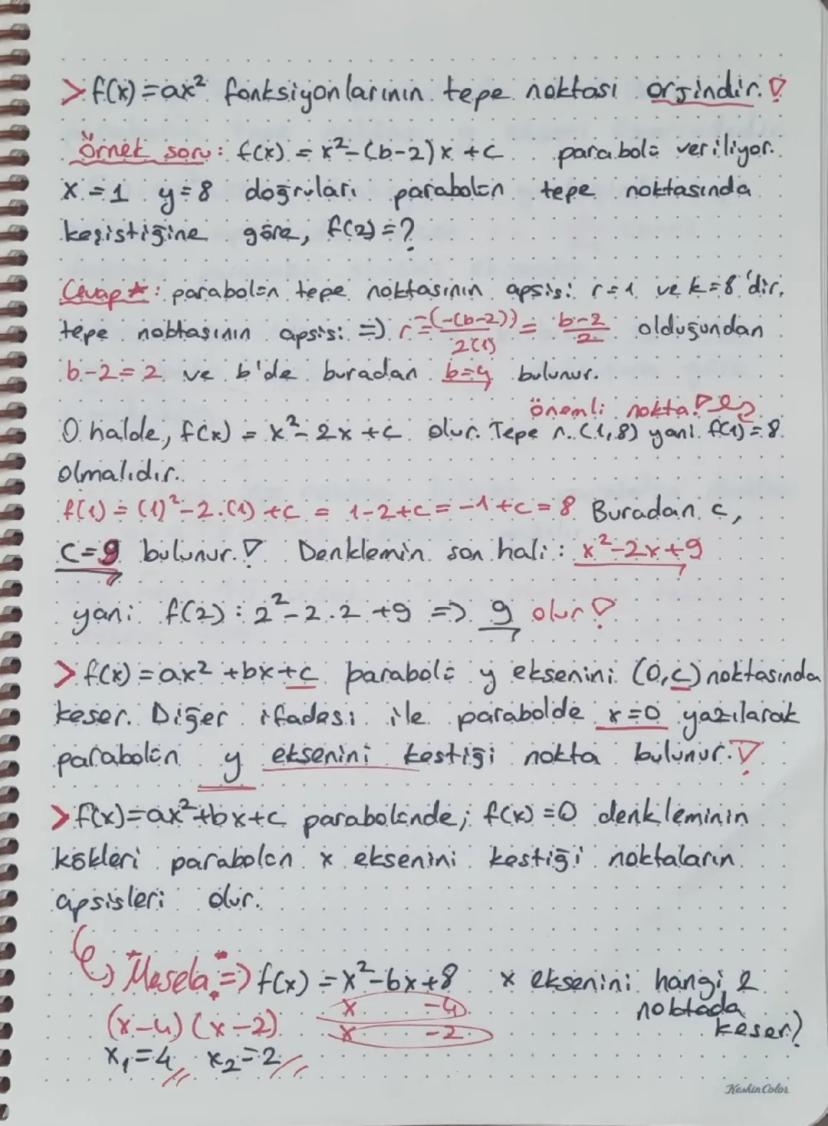 > f(x) = ax² fonksiyonlarının tepe noktası orjindir.!
Örnek soru: f(x) = x²-(b-2)x+c parabolü veriliyor.
x=1 y=8 doğruları parabolün tepe noktasında
kesiştiğine göre, f(2)=?
Cevap*: parabolün tepe noktasının apsisi r=1 ve k=8'dir.
tepe noktasının apsisi => r = -(-(b-2))/2(1) = b-2/2 olduğundan
b-2=2 ve b'de buradan b=4 bulunur.
önemli nokta!
O halde, f(x) = x²-2x+c olur. Tepe n. (1,8) yani f(1)=8
olmalıdır.
f(1) = (1)²-2.(1)+c = 1-2+c = -1+c = 8 Buradan c,
c=9 bulunur.! Denklemin son hali: x²-2x+9
yani f(2): 2²-2.2+9 => 9 olur!
> f(x) = ax²+bx+c parabolü y eksenini (0,c) noktasında
keser. Diğer ifadesi ile parabolde x=0 yazılarak
parabolün y eksenini kestiği nokta bulunur.!
> f(x)=ax²+bx+c parabolünde; f(x)=0 denkleminin
kökleri parabolün x eksenini kestiği noktaların
apsisleri olur.
"Mesela" => f(x) = x²-6x+8 x eksenini hangi 2
noktada
keser?
x -4
(x-4)(x-2) x -2
x₁=4 x₂=2
KeskinColor